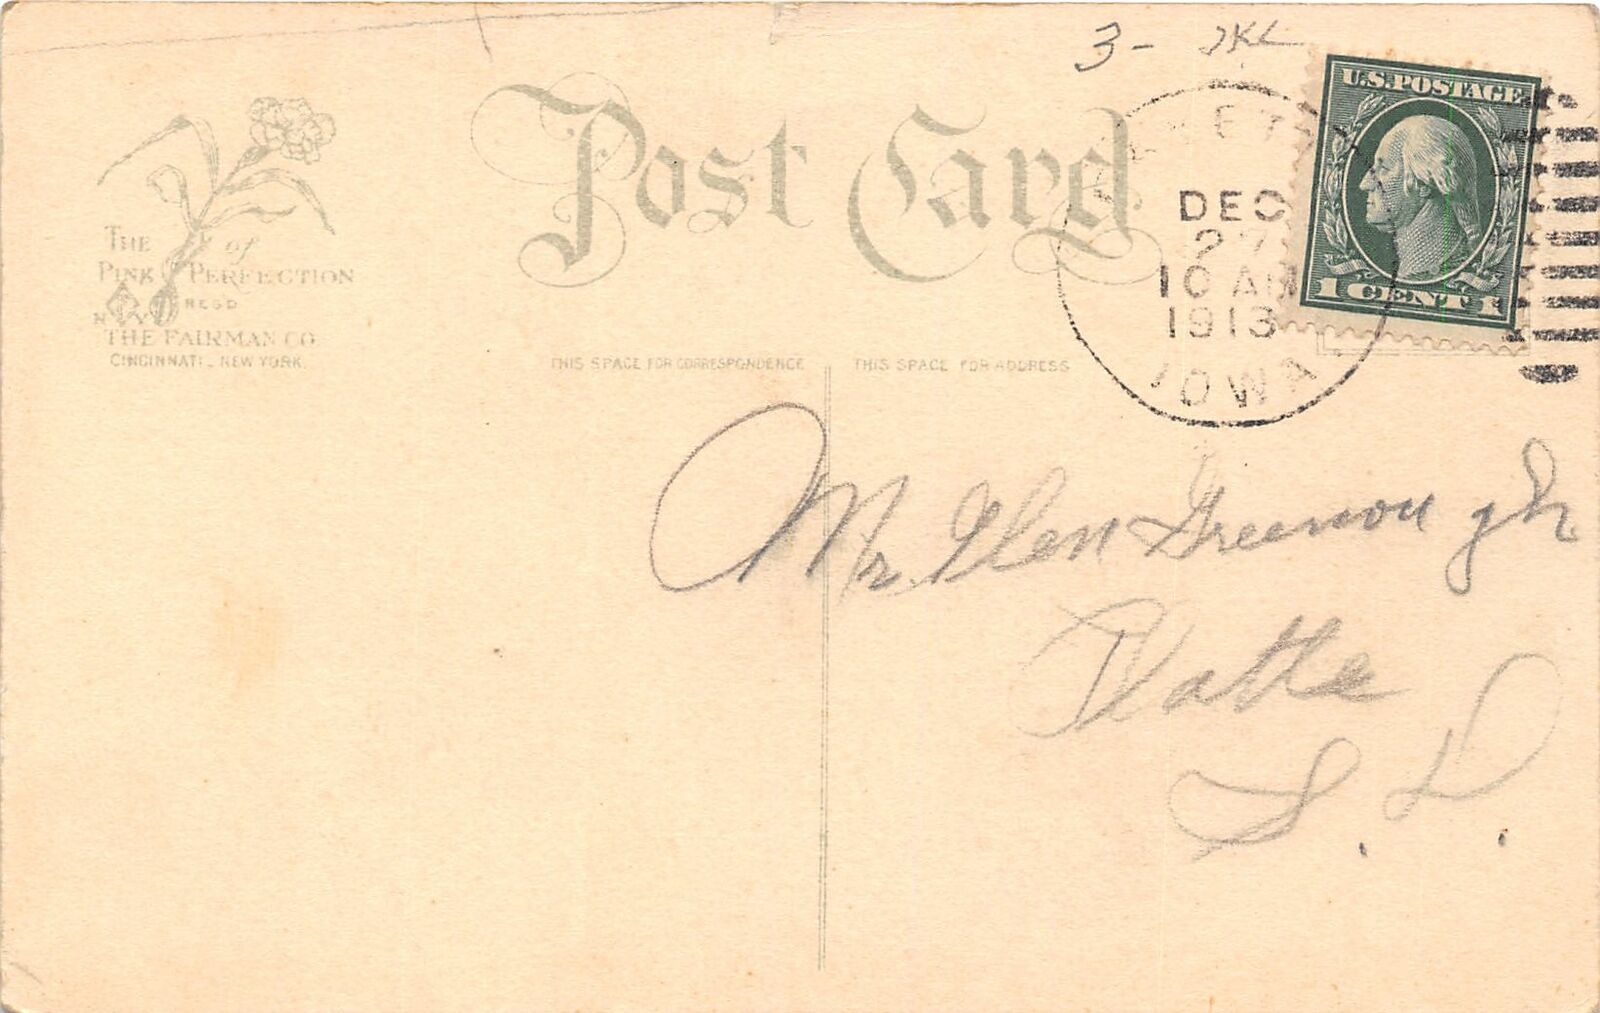 3-
Post Card
U.S.POSTAGE
1 CENT 1
DEC
27
10 AM
1913
IOWA.
THE of
PINK PERFECTION
REGD
N Y
THE FAIRMAN CO
CINCINNATI, NEW YORK.
THIS SPACE FOR CORRESPONDENCE
THIS SPACE FOR ADDRESS
Mr. Glen Greenough
Platte
S. D.